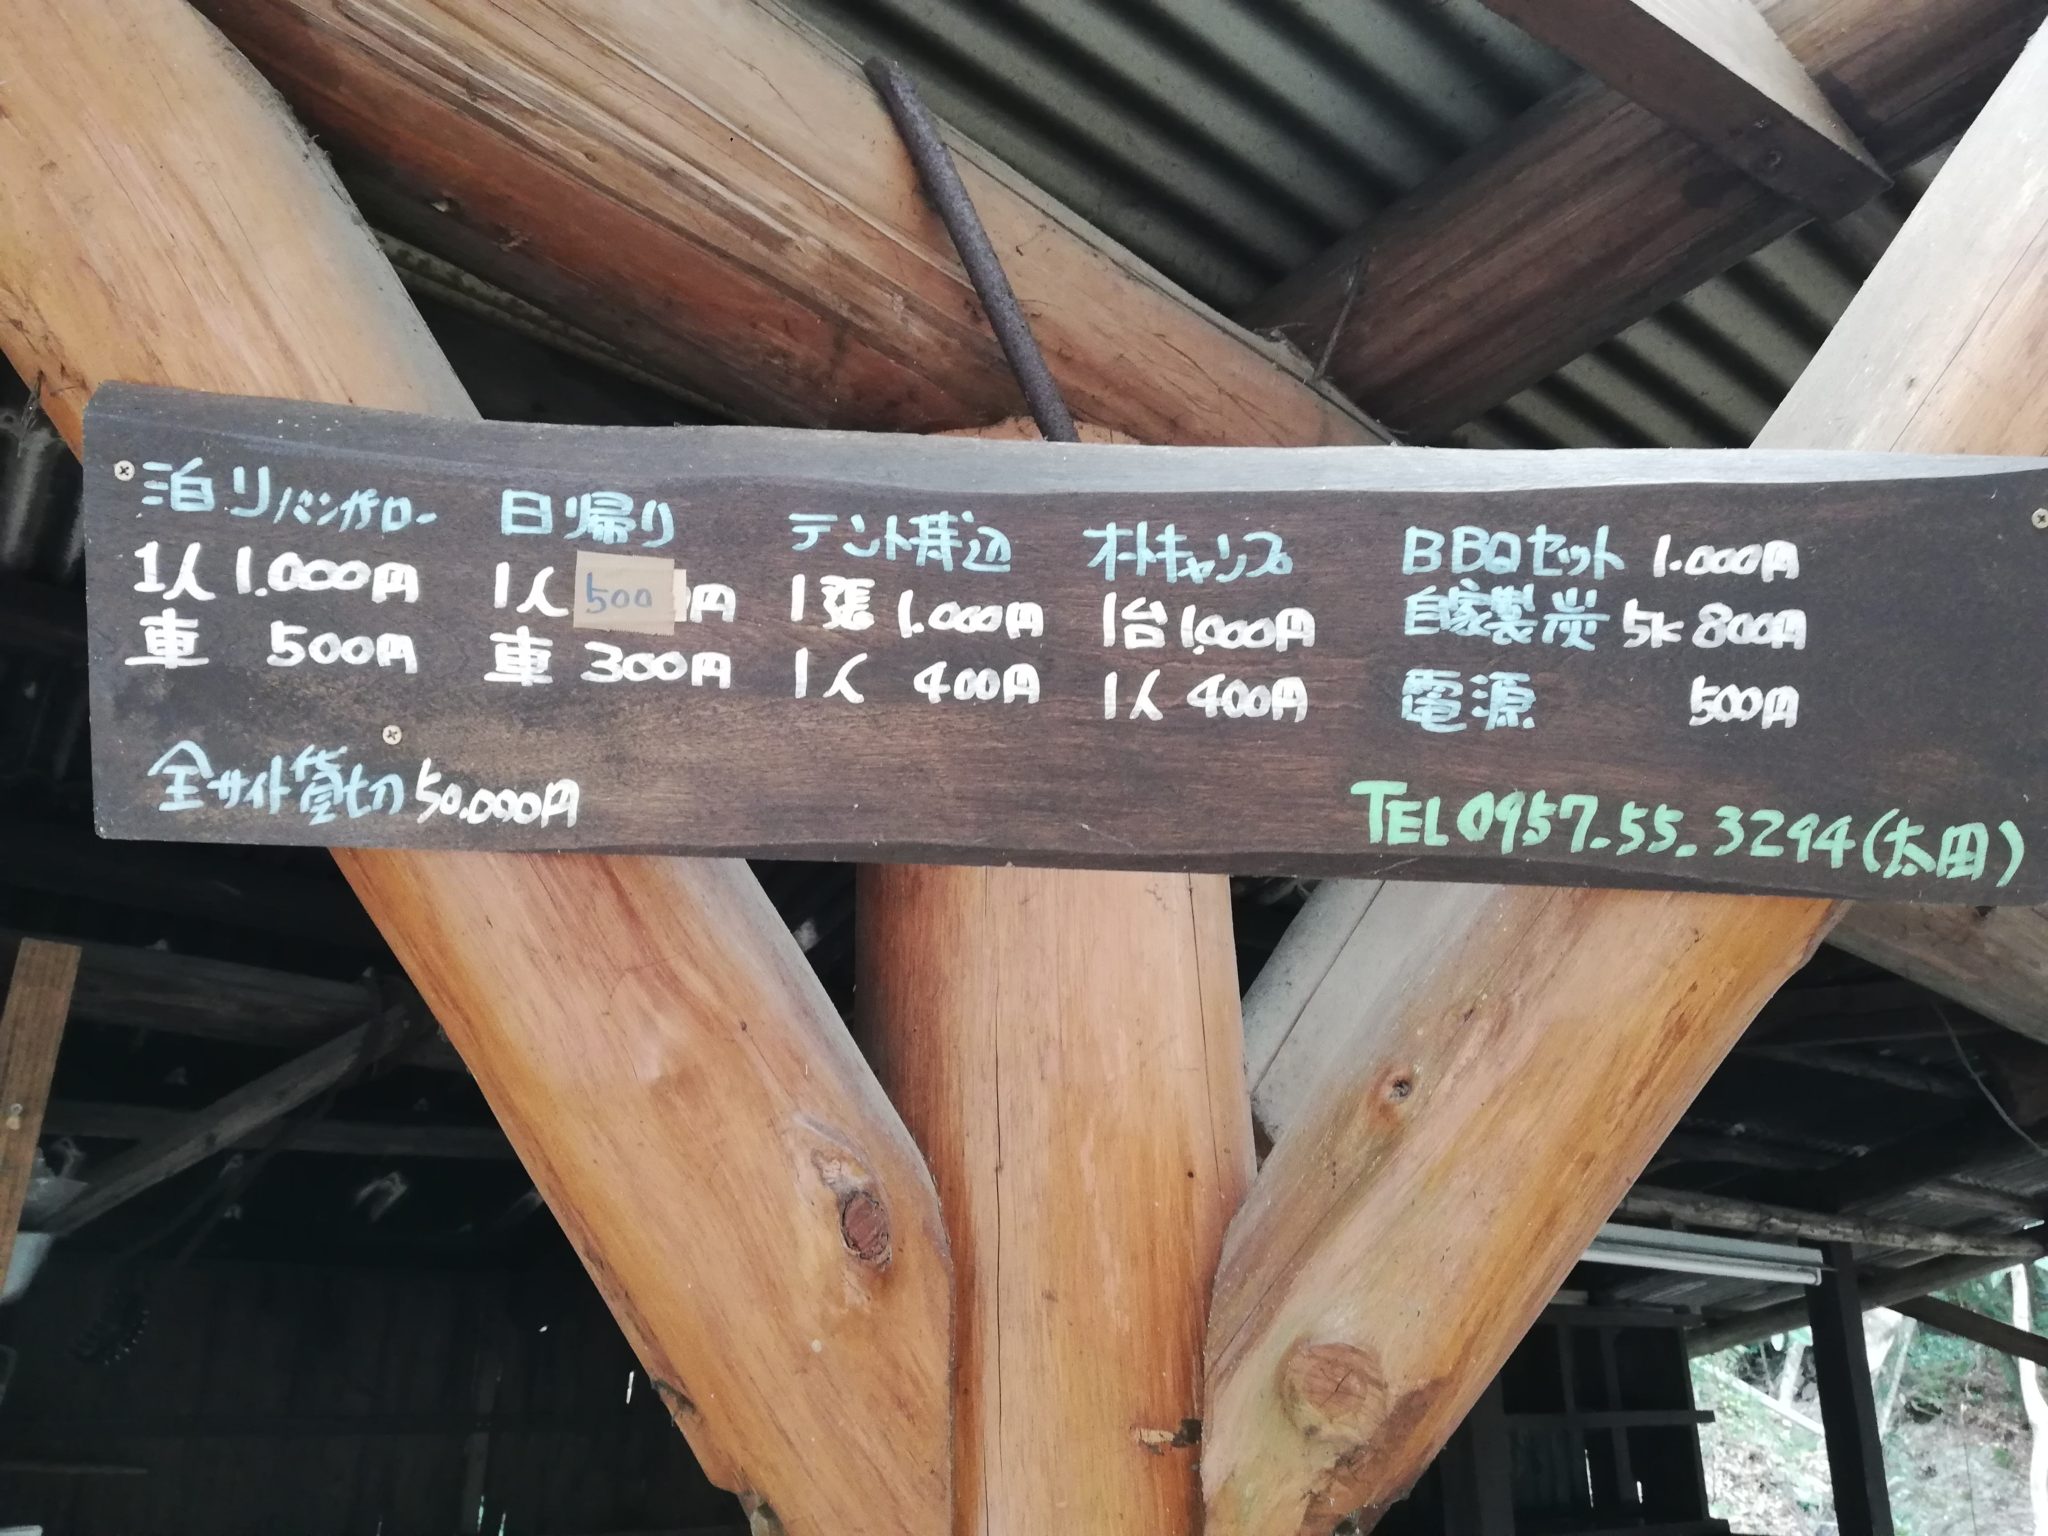 泊りバンガロー
1人 1.000円
車 500円
日帰り
1人 500円
車 300円
テント持込
1張 1.000円
1人 400円
オートキャンプ
1台 1.000円
1人 400円
BBQセット 1.000円
自家製炭 5K 800円
電源 500円
全サイト貸切 50.000円
TEL 0957.55.3294(太田)